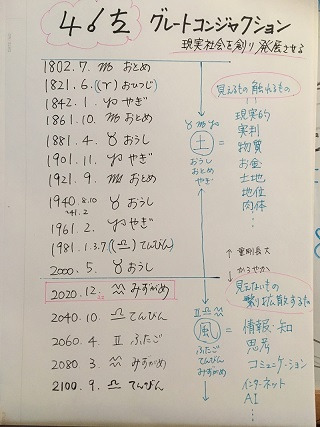 グレートコンジャクション
現実社会を創り発展させる
1802.7. ♍ おとめ
1821.6. (♈) おひつじ
1842.1. ♑ やぎ
1861.10. ♍ おとめ
1881.4. ♉ おうし
1901.11. ♑ やぎ
1921.9. ♍ おとめ
1940 8.10
'41.2 ♉ おうし
1961.2. ♑ やぎ
1981.1.3.7 (♎) てんびん
2000.5. ♉ おうし
2020.12. ♒ みずがめ
2040.10. ♎ てんびん
2060.4. Ⅱ ふたご
2080.3 ♒ みずがめ
2100.9. ♎ てんびん
♉♍♑
土
おうし
おとめ
やぎ
=
見えるもの 触れるもの
現実的
実利
物質
お金
土地
地位
肉体
↑ 重厚長大
↓ かろやか
見えないもの
繋り拡散するもの
Ⅱ♎♒
風
ふたご
てんびん
みずがめ
=
情報・知
思考
コミュニケーション
インターネット
AI